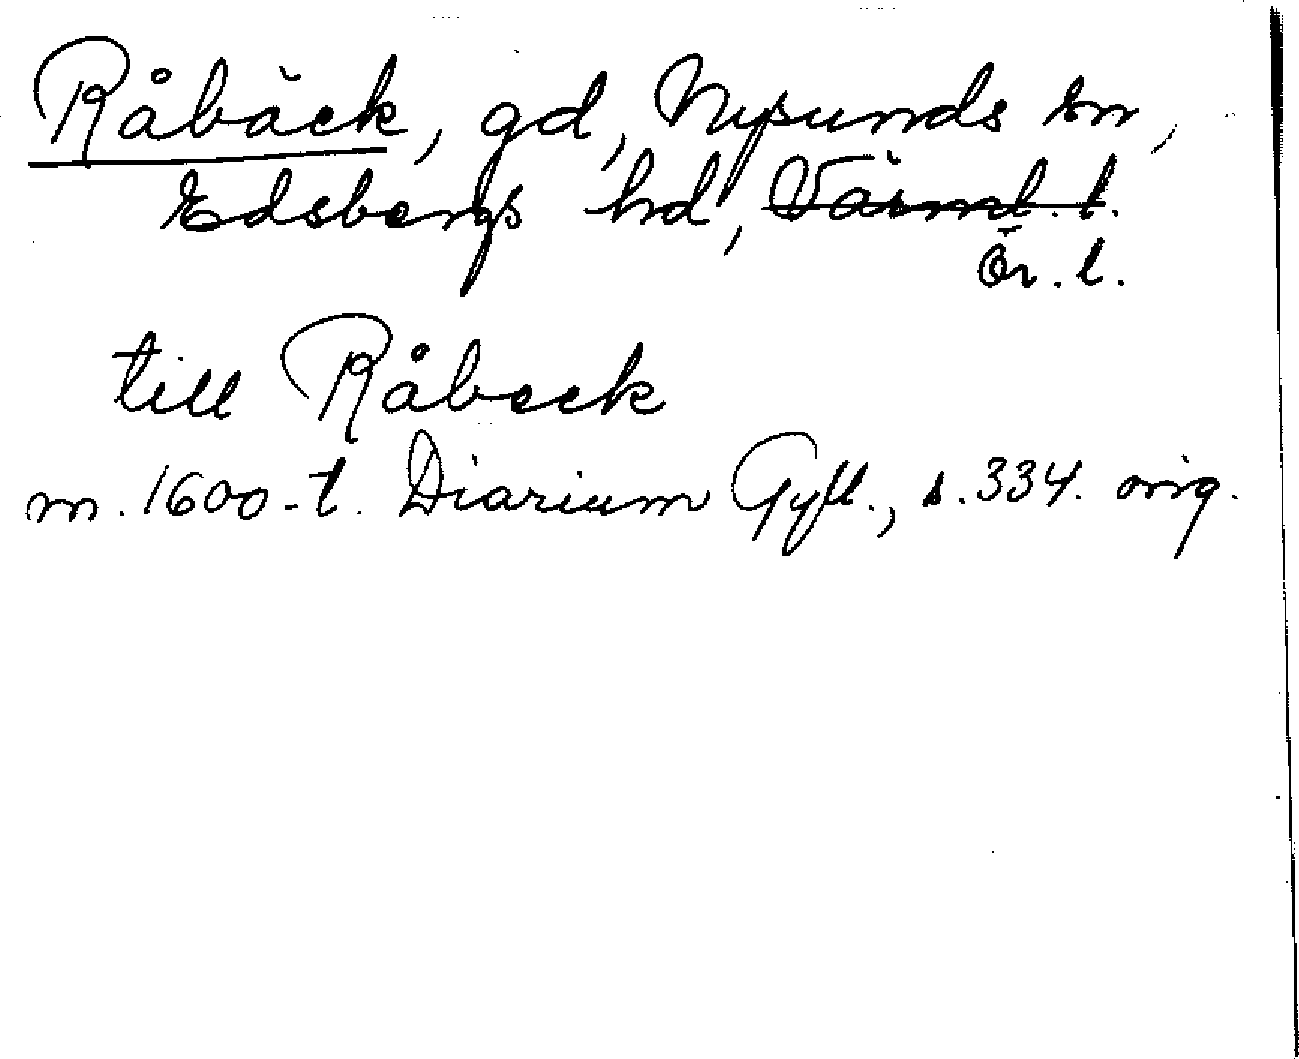 Råbäck, gd, Nysunds sn,
Edsbergs hd, Värml. l.
Ör. l.
till Råbeck
m. 1600-t. Diarium Gyll., s. 334. orig.